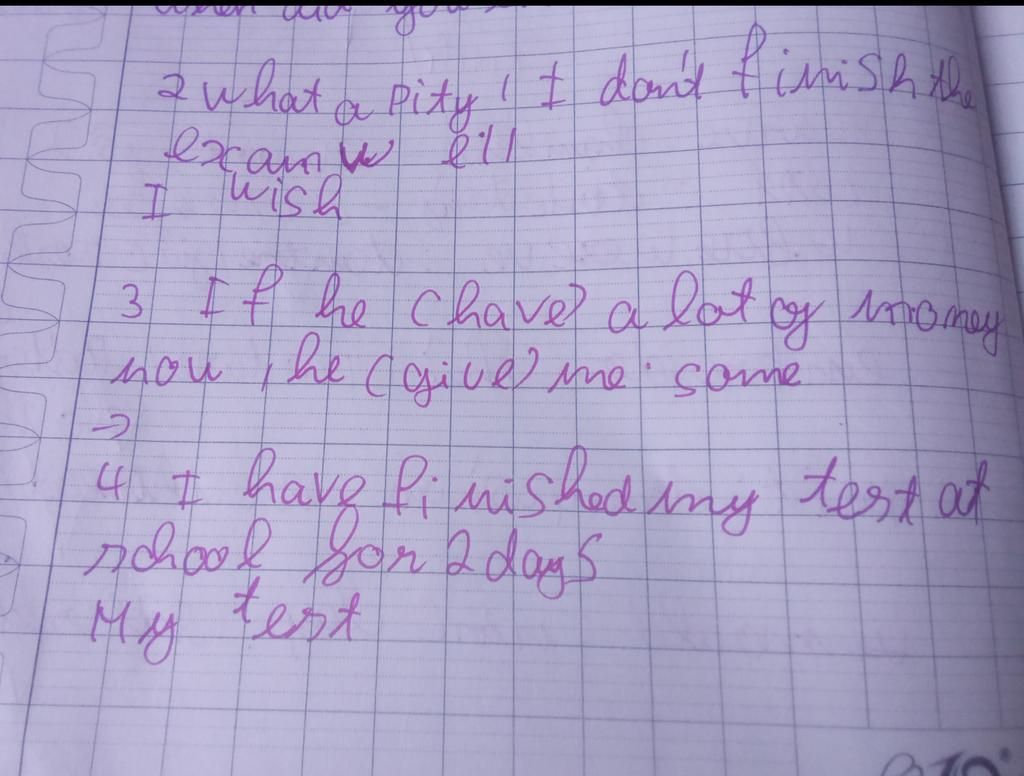 2 What a pity! I don't finish the
exam well
I wish
3 If he (have) a lot of money
now, he (give) me some
→
4 I have finished my test at
school for 2 days
My test